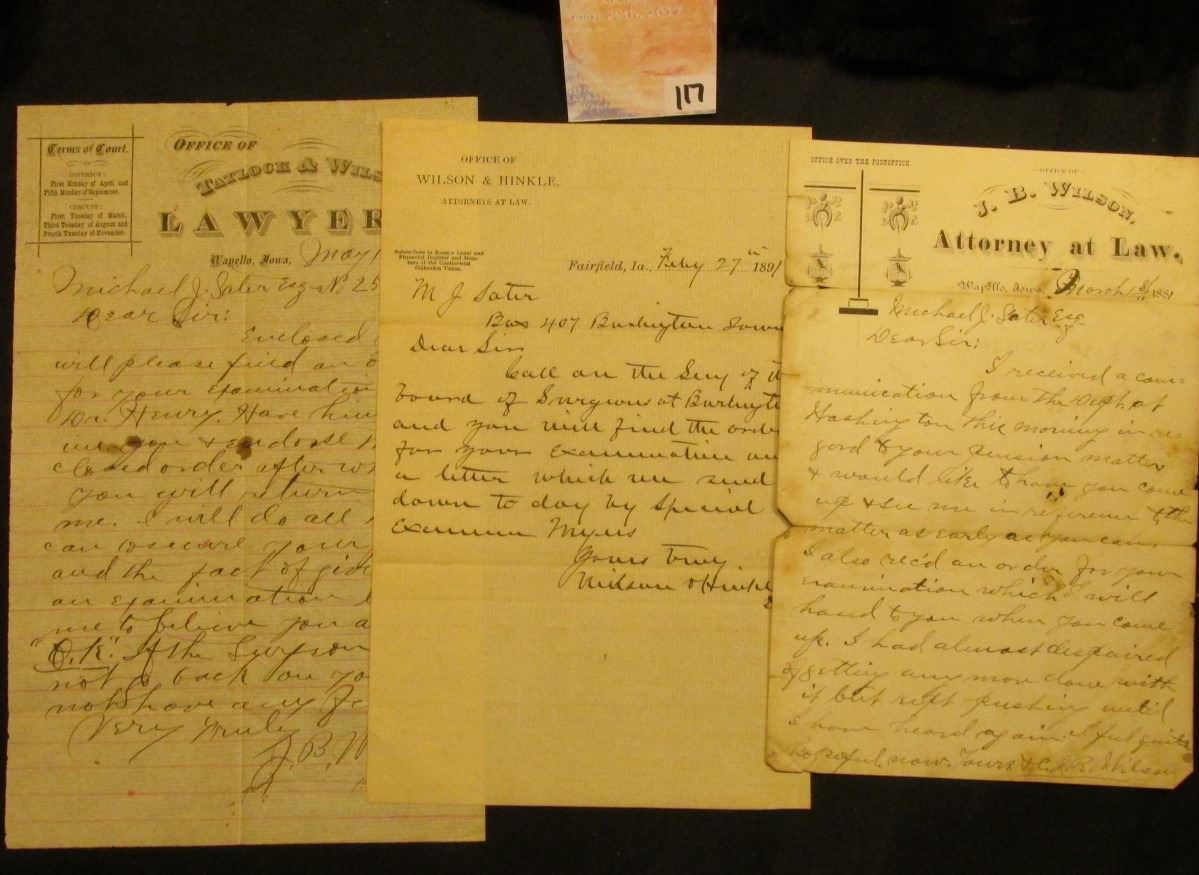 Nov. 29th, 2017
117
Terms of Court.
DISTRICT:
First Monday of April and
Fifth Monday of September.
CIRCUIT:
First Tuesday of March,
Third Tuesday of August and
Fourth Tuesday of November.
OFFICE OF
TATLOCK & WILS
LAWYER
Wapello, Iowa, May 1
Michael J. Sater Esq
Dear Sir:
Enclosed
will please find an o
for your examinatio
Dr. Henry. Have him
you & endorse
closed order after wh
you will return
me. I will do all
can to secure your
and the fact of
an examination
me to believe you a
"O.K." If the Surgeon
not go back on yo
not have any fe
Very Truly
J. B. W
OFFICE OF
WILSON & HINKLE,
ATTORNEYS AT LAW.
Subscribers to Rowe's Legal and
Financial Register and Mem-
bers of the Continental
Collection Union.
Fairfield, Ia., Feby 27th 1891
M J Sater
Box 407 Burlington Iowa
Dear Sir
Call on the Secy of th
board of Surgeons at Burlingto
and you will find the order
for your examination an
a letter which we send
down to day by special
Examiner Myers
Yours truly
Wilson & Hinkle
OFFICE OVER THE POSTOFFICE.
OFFICE OF
J. B. WILSON,
Attorney at Law.
Wapello, Iowa, March 1st 1881
Michael J. Sater Esq
Dear Sir:
I received a com-
munication from the Dept. at
Washington this morning in re-
gard to your pension matter
& would like to have you come
up & see me in reference to the
matter as early as you can.
I also rec'd an order for your
examination which I will
hand to you when you come
up. I had almost despaired
of getting any more done with
it but kept pushing until
I have heard again. I feel quite
hopeful now. Yours &c. J. B. Wilson